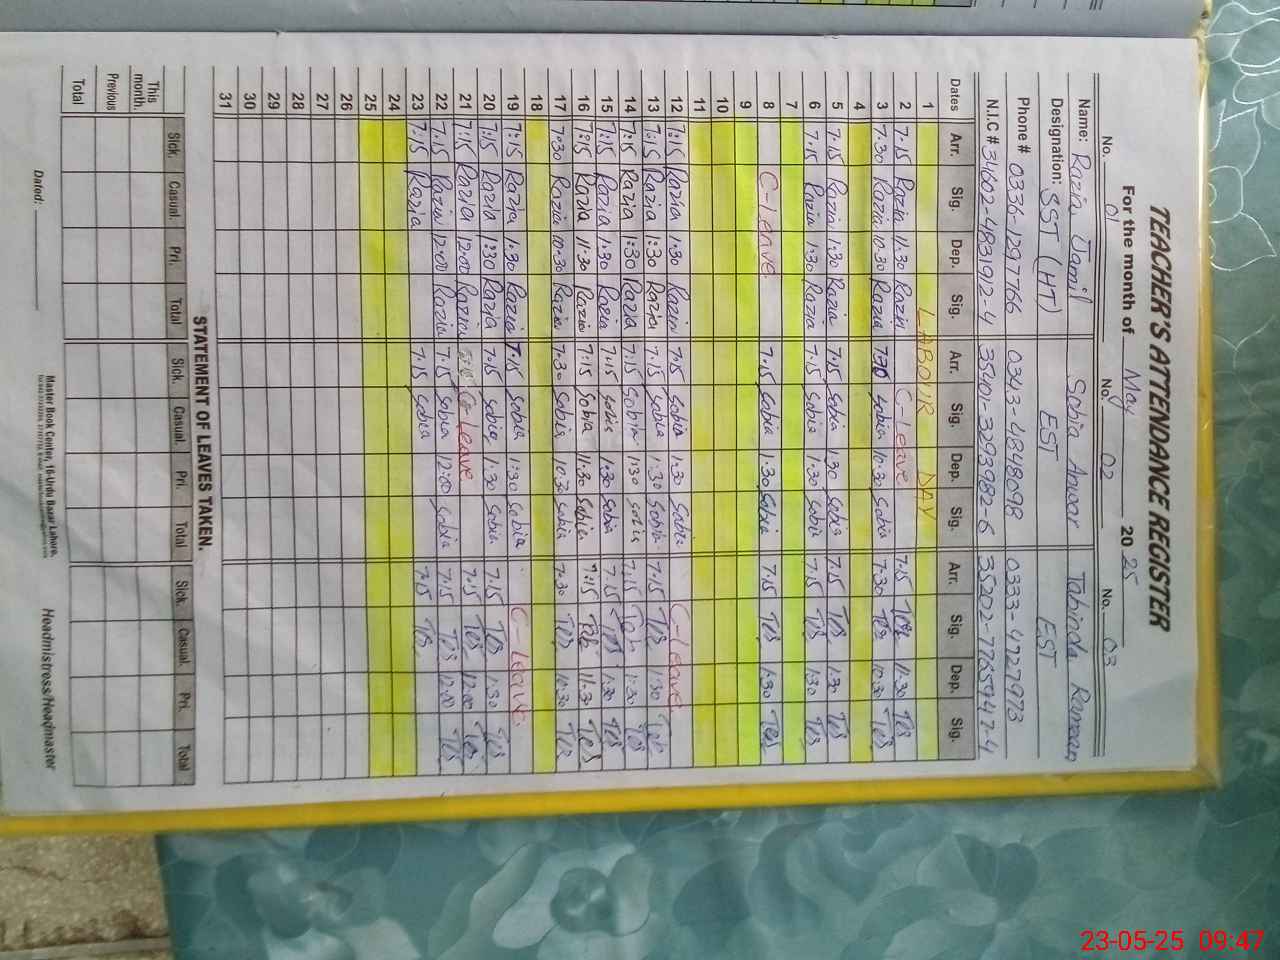 TEACHER'S ATTENDANCE REGISTER
For the month of May 2025
No. 01 No. 02 No. 03
Name: Razia Jamil Sobia Anwar Tabinda Ramzan
Designation: SST (HT) EST EST
Phone # 0336-1297766 0343-4848098 0333-4727973
N.I.C # 34602-4831912-4 35401-3293982-6 35202-7765947-4
Dates Arr. Sig. Dep. Sig. Arr. Sig. Dep. Sig. Arr. Sig. Dep. Sig.
1 LABOUR DAY
2 7:15 Razia 11:30 Razia C-Leave 7:15 11:30
3 7:30 Razia 10:30 Razia 7:30 Sobia 10:30 Sobia 7:30 10:30
4
5 7:15 Razia 1:30 Razia 7:15 Sobia 1:30 Sobia 7:15 1:30
6 7:15 Razia 1:30 Razia 7:15 Sobia 1:30 Sobia 7:15 1:30
7
8 C-Leave 7:15 Sobia 1:30 Sobia 7:15 1:30
9
10
11
12 7:15 Razia 1:30 Razia 7:15 Sobia 1:30 Sobia C-Leave
13 7:15 Razia 1:30 Razia 7:15 Sobia 1:30 Sobia 7:15 1:30
14 7:15 Razia 1:30 Razia 7:15 Sobia 1:30 Sobia 7:15 1:30
15 7:15 Razia 1:30 Razia 7:15 Sobia 1:30 Sobia 7:15 1:30
16 7:15 Razia 11:30 Razia 7:15 Sobia 11:30 Sobia 7:15 11:30
17 7:30 Razia 10:30 Razia 7:30 Sobia 10:30 Sobia 7:30 10:30
18
19 7:15 Razia 1:30 Razia 7:15 Sobia 1:30 Sobia C-Leave
20 7:15 Razia 1:30 Razia 7:15 Sobia 1:30 Sobia 7:15 1:30
21 7:15 Razia 12:00 Razia C-Leave 7:15 12:00
22 7:15 Razia 12:00 Razia 7:15 Sobia 12:00 Sobia 7:15 12:00
23 7:15 Razia 7:15 Sobia 7:15
24
25
26
27
28
29
30
31
STATEMENT OF LEAVES TAKEN.
Sick. Casual. Pri. Total Sick. Casual. Pri. Total Sick. Casual. Pri. Total
This month
Previous
Total
Dated:
Master Book Center, 16-Urdu Bazar Lahore.
Headmistress/Headmaster
23-05-25 09:47